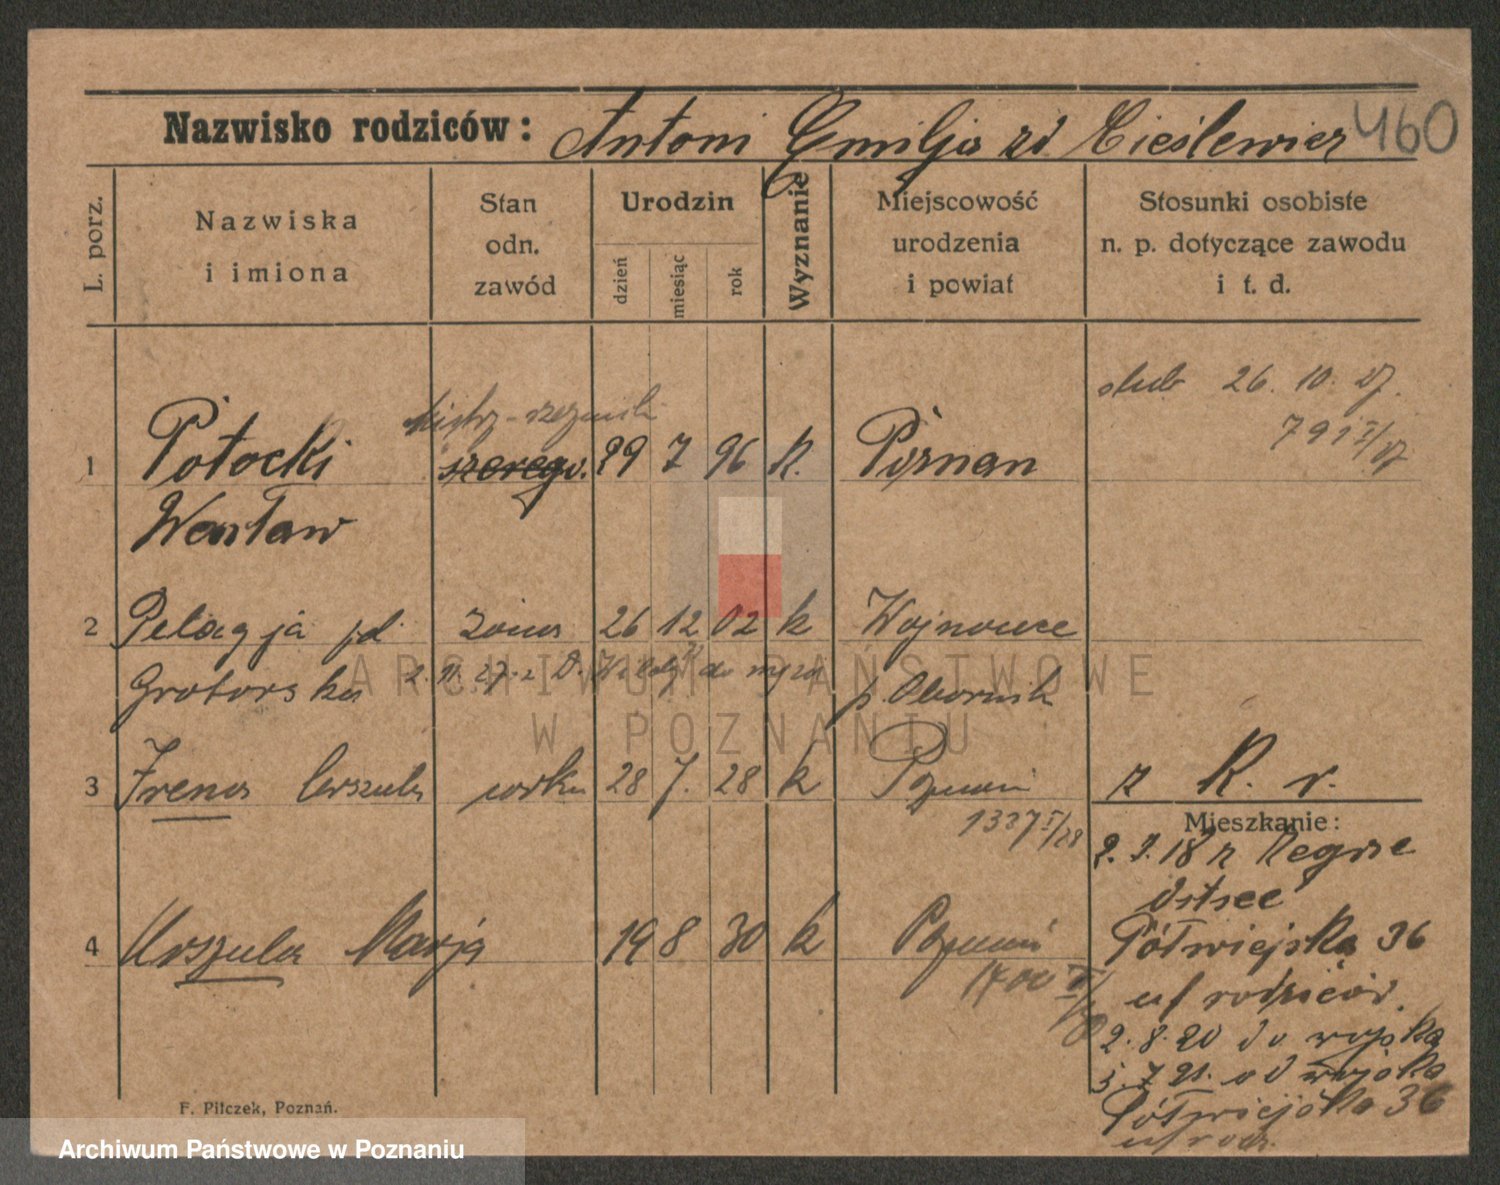 460
Nazwisko rodziców: Antoni Emilja zd Cieślewicz
L. porz.
Nazwiska
i imiona
Stan
odn.
zawód
Urodzin
dzień
miesiąc
rok
Wyznanie
Miejscowość
urodzenia
i powiat
Stosunki osobiste
n. p. dotyczące zawodu
i t. d.
ślub 26. 10. 27.
791 I/27
mistrz-rzeźnik
1 Potocki szereg. 29 7 96 k. Poznan
Wacław
2 Pelagja zd żona 26 12 02 k Wojnowce
Grotorska 2. 11. 27. z do męża p. Obornik
3 Irena Urszula córka 28 7. 28 k Poznań z K. r.
1337 I/28
Mieszkanie:
2. 7. 18 z
4 Urszula Marja 19 8 30 k Poznań
1700
Półwiejska 36
u/ rodziców.
2. 8. 20 do wojska
5. 7. 21. od wojska
Półwiejska 36
u/ rodz.
F. Pilczek, Poznań.
ARCHIWUM PAŃSTWOWE
W POZNANIU
Archiwum Państwowe w Poznaniu